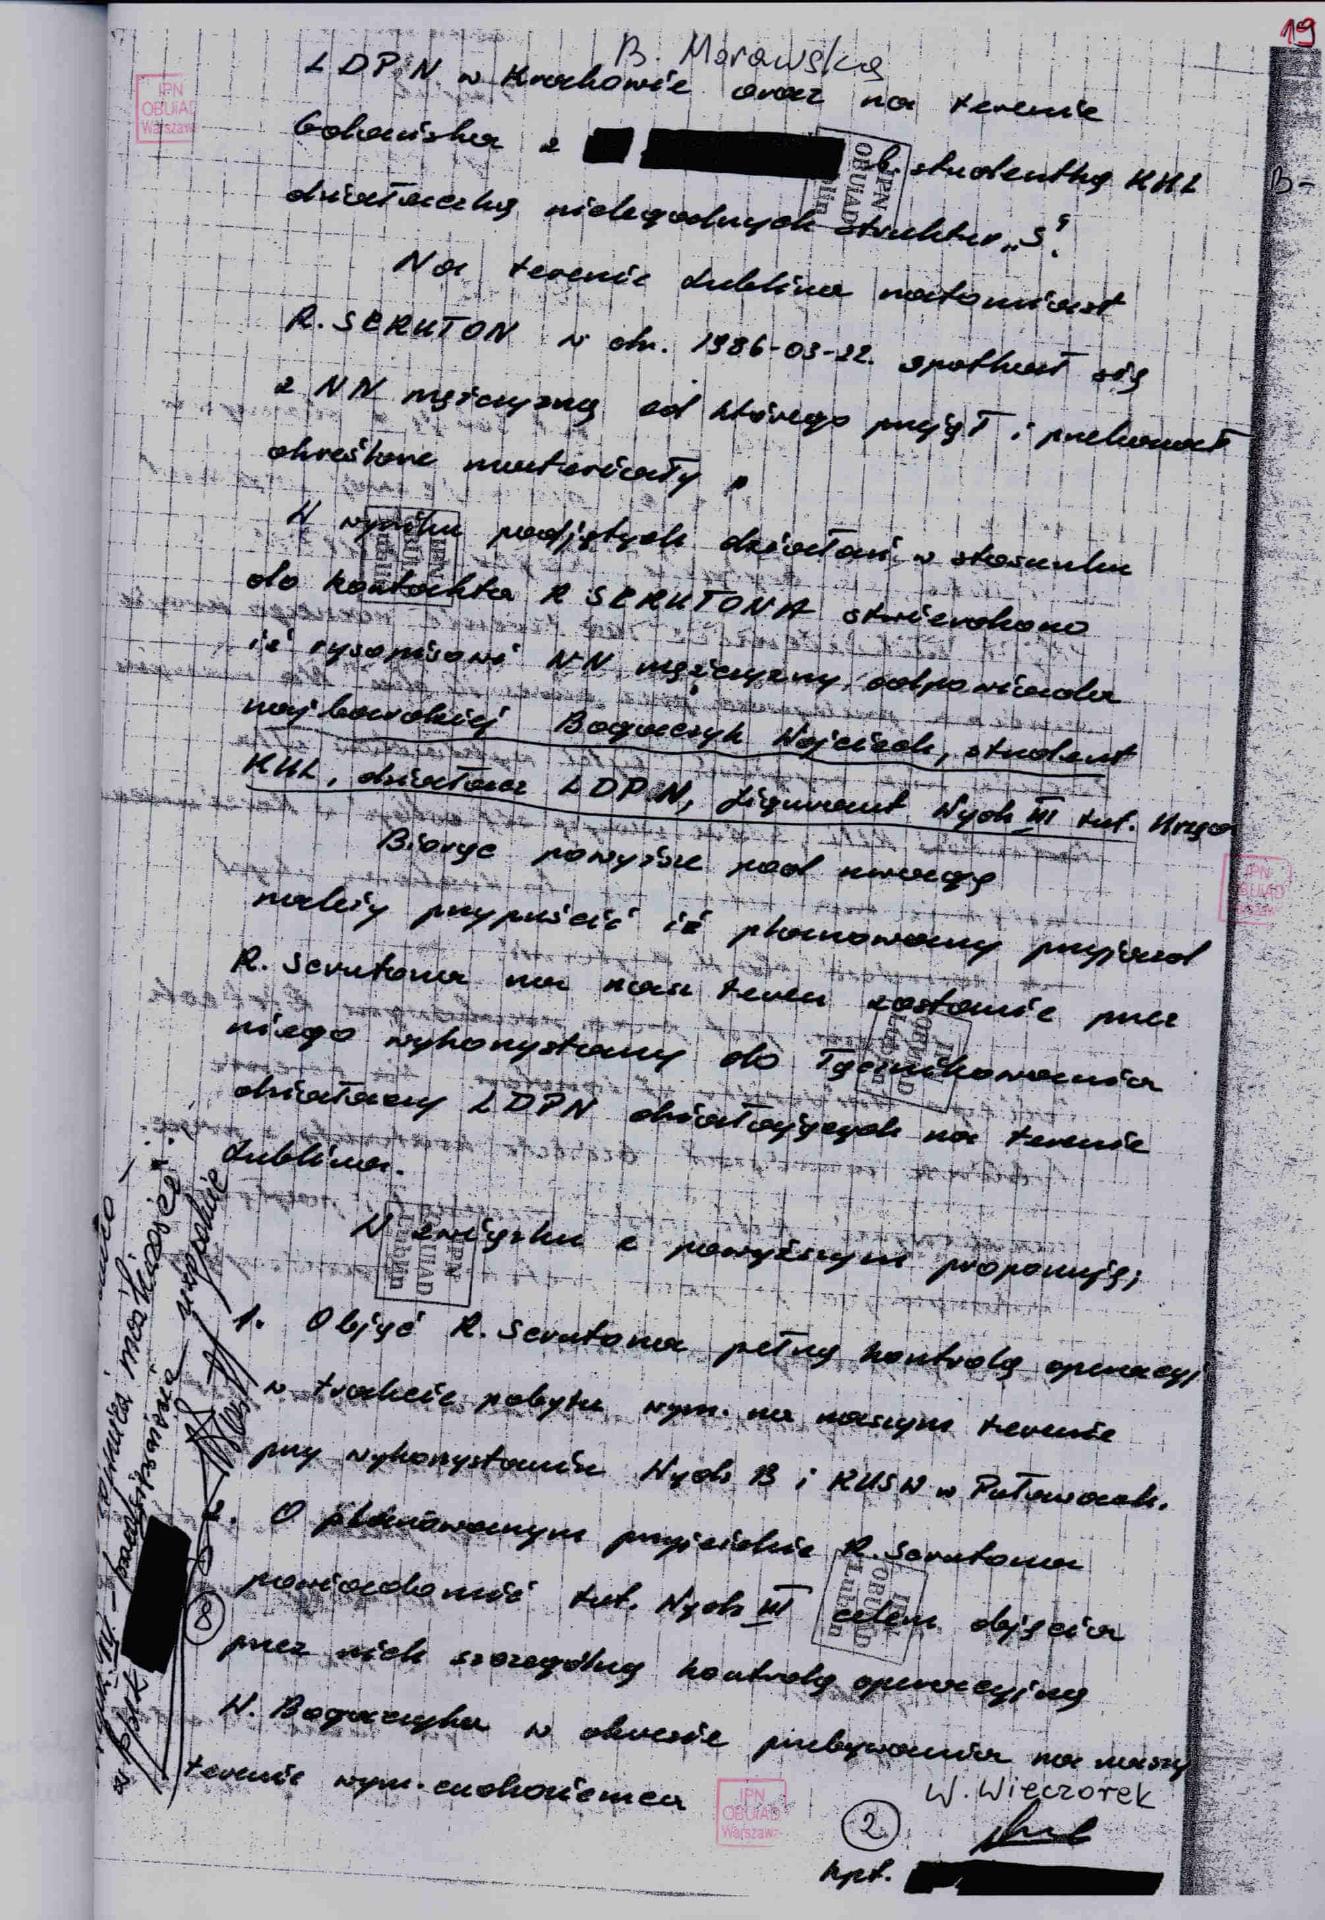 19
B. Morawska
LDPN w Krakowie oraz na terenie
IPN
OBUiAD
Warszawa
Gdańska z b. studentką KUL
B-
IPN
OBUiAD
Lublin
działaczką nielegalnych struktur „S".
Na terenie Lublina natomiast
R. SCRUTON w dn. 1986-03-22. spotkał się
z NN mężczyzną od którego przyjął i przekazał
określone materiały.
W wyniku podjętych działań w stosunku
IPN
OBUiAD
Lublin
do kontaktu R SCRUTONA stwierdzono
iż rysopisowi NN mężczyzny odpowiada
najbardziej Bogaczyk Wojciech, student
KUL, działacz LDPN, figurant Wydz III tut. Urzędu
Biorąc powyższe pod uwagę
IPN
OBUiAD
Warszawa
należy przypuścić iż planowany przyjazd
R. Scrutona na nasz teren zostanie przez
niego wykorzystany do łącznikowania
IPN
OBUiAD
Lublin
działaczy LDPN działających na terenie
Lublina.
W związku z powyższym proponuję;
IPN
OBUiAD
Lublin
1. Objąć R. Scrutona pełną kontrolą operacyj
w trakcie pobytu wym. na naszym terenie
przy wykorzystaniu Wydz B i RUSW w Puławach.
2. O planowanym przyjeździe R. Scrutona
powiadomić tut. Wydz III celem objęcia
IPN
OBUiAD
Lublin
przez nich szczególną kontrolą operacyjną
W. Bogaczyka w okresie przebywania na naszym
terenie wym. cudzoziemca
W. Wieczorek
IPN
OBUiAD
Warszawa
2
kpt.
8